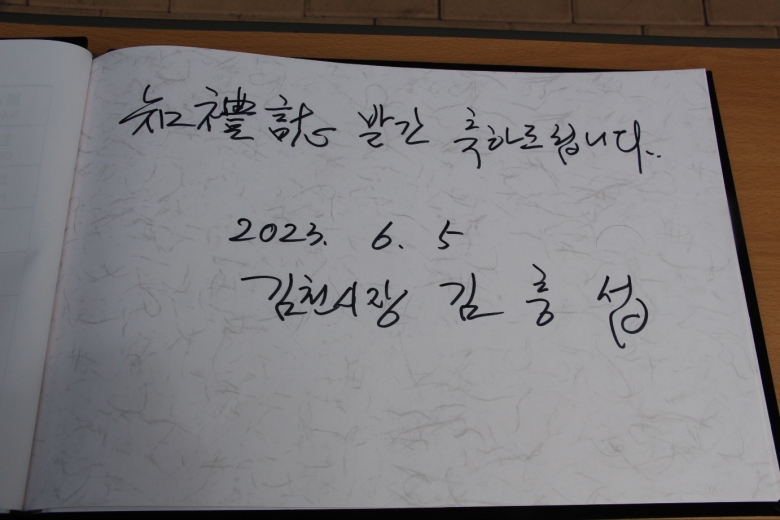 知禮誌 발간 축하드립니다..
2023. 6. 5
김천시장 김 충 섭